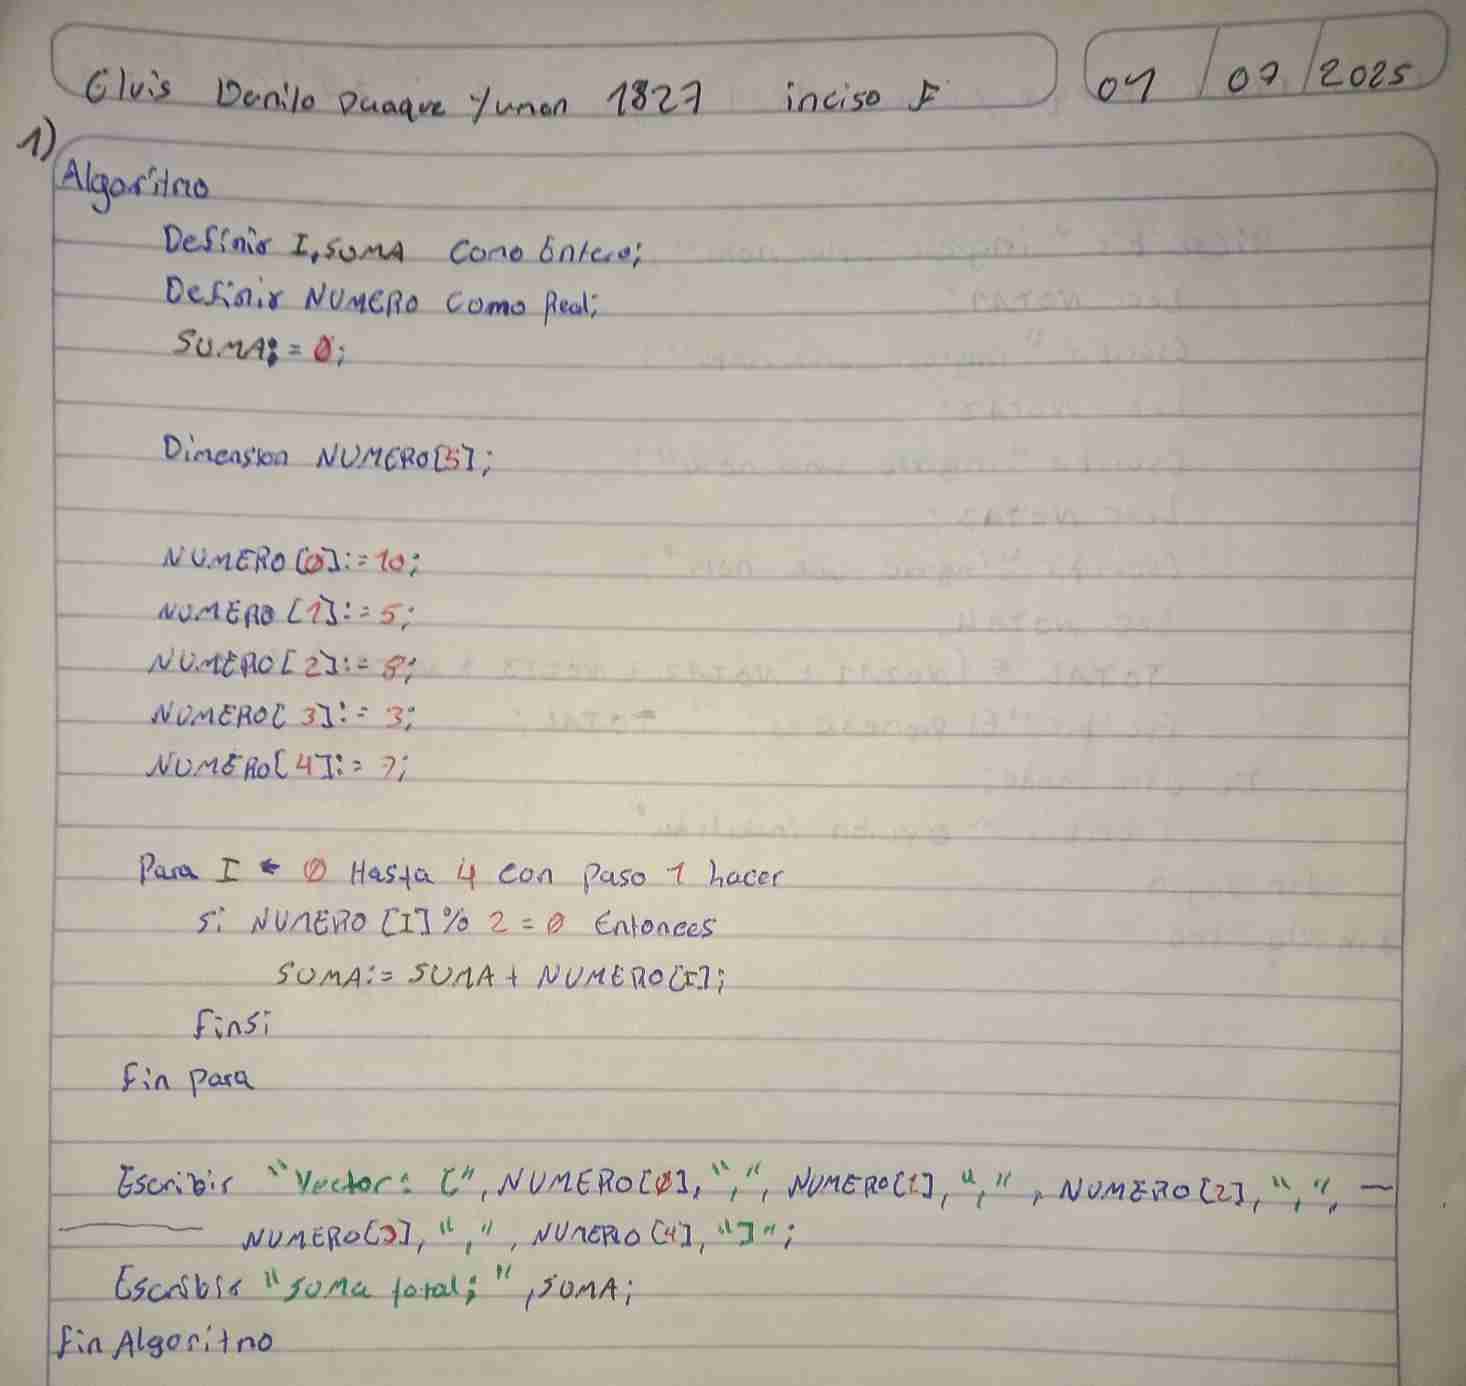 Elvis Danilo Duaque Yuman 1827 inciso F 04/07/2025
1)
Algoritmo
Definir I, SUMA como Entero;
Definir NUMERO como Real;
SUMA:=0;
Dimension NUMERO[5];
NUMERO[0]:=10;
NUMERO[1]:=5;
NUMERO[2]:=8;
NUMERO[3]:=3;
NUMERO[4]:=7;
Para I ← 0 Hasta 4 con paso 1 hacer
Si NUMERO[I]%2=0 Entonces
SUMA:= SUMA + NUMERO[I];
Finsi
Fin para
Escribir "Vector: [", NUMERO[0], ",", NUMERO[1], ",", NUMERO[2], ",", —
— NUMERO[3], ",", NUMERO[4], "]";
Escribir "Suma total; ", SUMA;
Fin Algoritmo